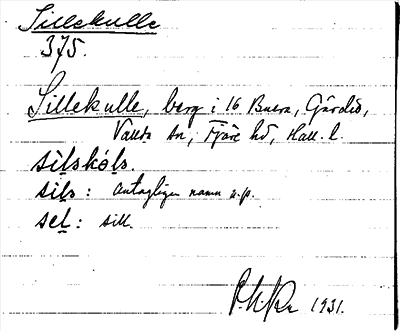 Sillekulle
375.
Sillekulle, berg i 16 Buera, Gårdió,
Vallda sn, Fjäre hd, Hall. l.
sìlskòls.
sìls: antagligen namn u.p.
sel: sill.
1931.